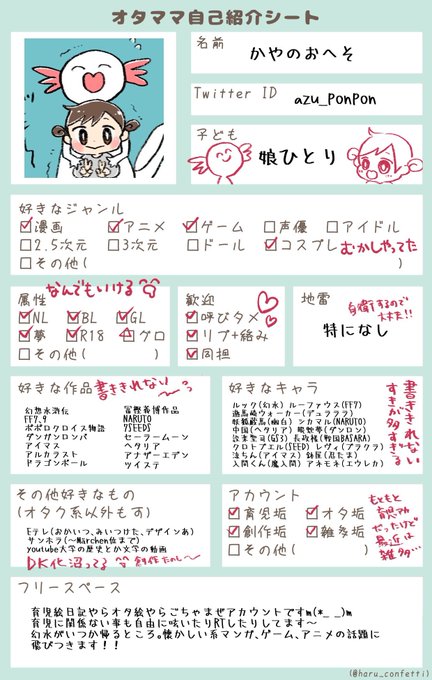 オタママ自己紹介シート
名前
かやのおへそ
Twitter ID
azu_PonPon
子ども
娘ひとり
好きなジャンル
漫画 アニメ ゲーム 声優 アイドル
2.5次元 3次元 ドール コスプレ むかしやってた
その他( )
属性 なんでもいける
NL BL GL
夢 R18 グロ
その他( )
歓迎
呼びタメ
リプ+絡み
同担
地雷
自衛するので大丈夫!!
特になし
好きな作品 書ききれない〜
幻想水滸伝
FF7.9
ポポロクロイス物語
ダンガンロンパ
アイマス
アルカラスト
ドラゴンボール
冨樫義博作品
NARUTO
7SEEDS
セーラームーン
ヘタリア
アナザーエデン
ツイステ
好きなキャラ
書ききれない
すきが多すぎる
ルック(幻水) ルーファウス(FF7)
遊馬崎ウォーカー(デュラララ)
妖狐蔵馬(幽白) シカマル(NARUTO)
中国(ヘタリア)
クロトブエル(SEED) レヴィ(ブラクラ)
入間くん(魔入間) アネモネ(エウレカ)
その他好きなもの
(オタク系以外も可)
Eテレ(おかいつ、みいつけた、デザインあ)
サンホラ(〜Märchen位まで)
youtube大学の歴史とか文学の動画
DK化沼ってる 創作たのし〜
アカウント
育児垢 オタ垢
創作垢 雑多垢
その他( )
もともと
育児アカ
だったけど
最近は
雑多…
フリースペース
育児絵日記やらオタ絵やらごちゃまぜアカウントですm(*_ _)m
育児に関係ない事も自由に呟いたりRTしたりしてます〜
幻水がいつか帰るところ。懐かしい系マンガ、ゲーム、アニメの話題に
飛びつきます!!
(@haru_confetti)